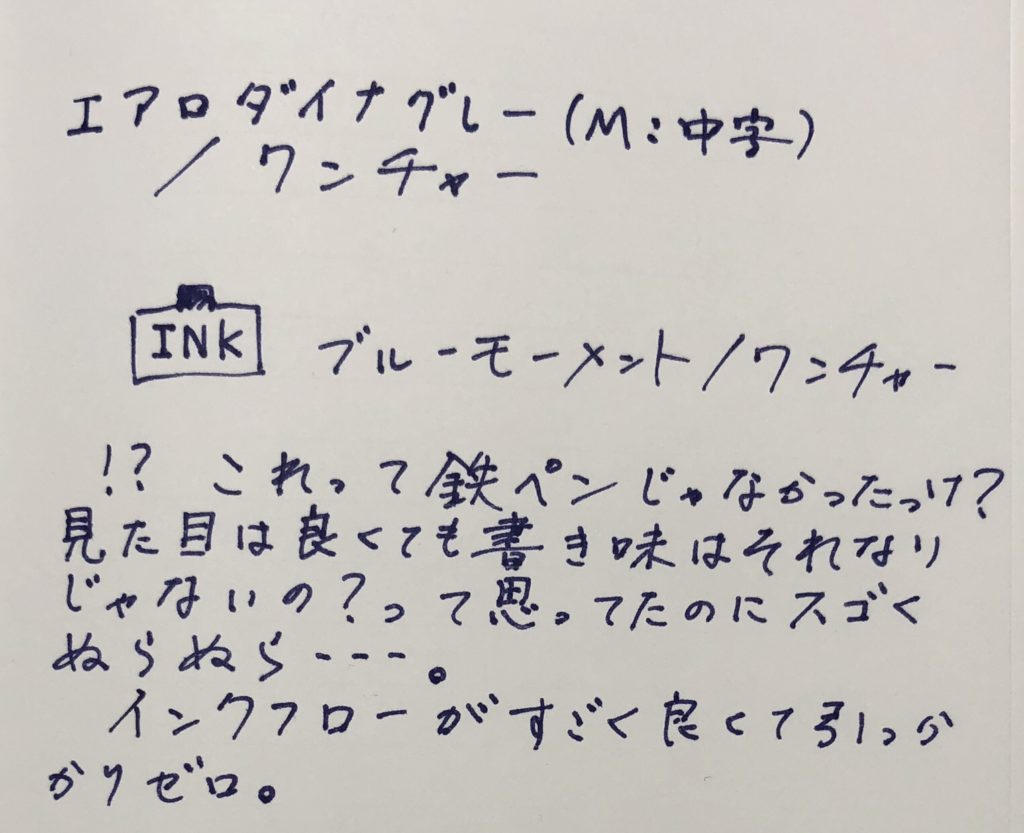 エアロダイナグレー(M:中字)
/ワンチャー
INK ブルーモーメント/ワンチャー
!? これって鉄ペンじゃなかったっけ?
見た目は良くても書き味はそれなり
じゃないの?って思ってたのにスゴく
ぬらぬら---。
インクフローがすごく良くて引っか
かりゼロ。